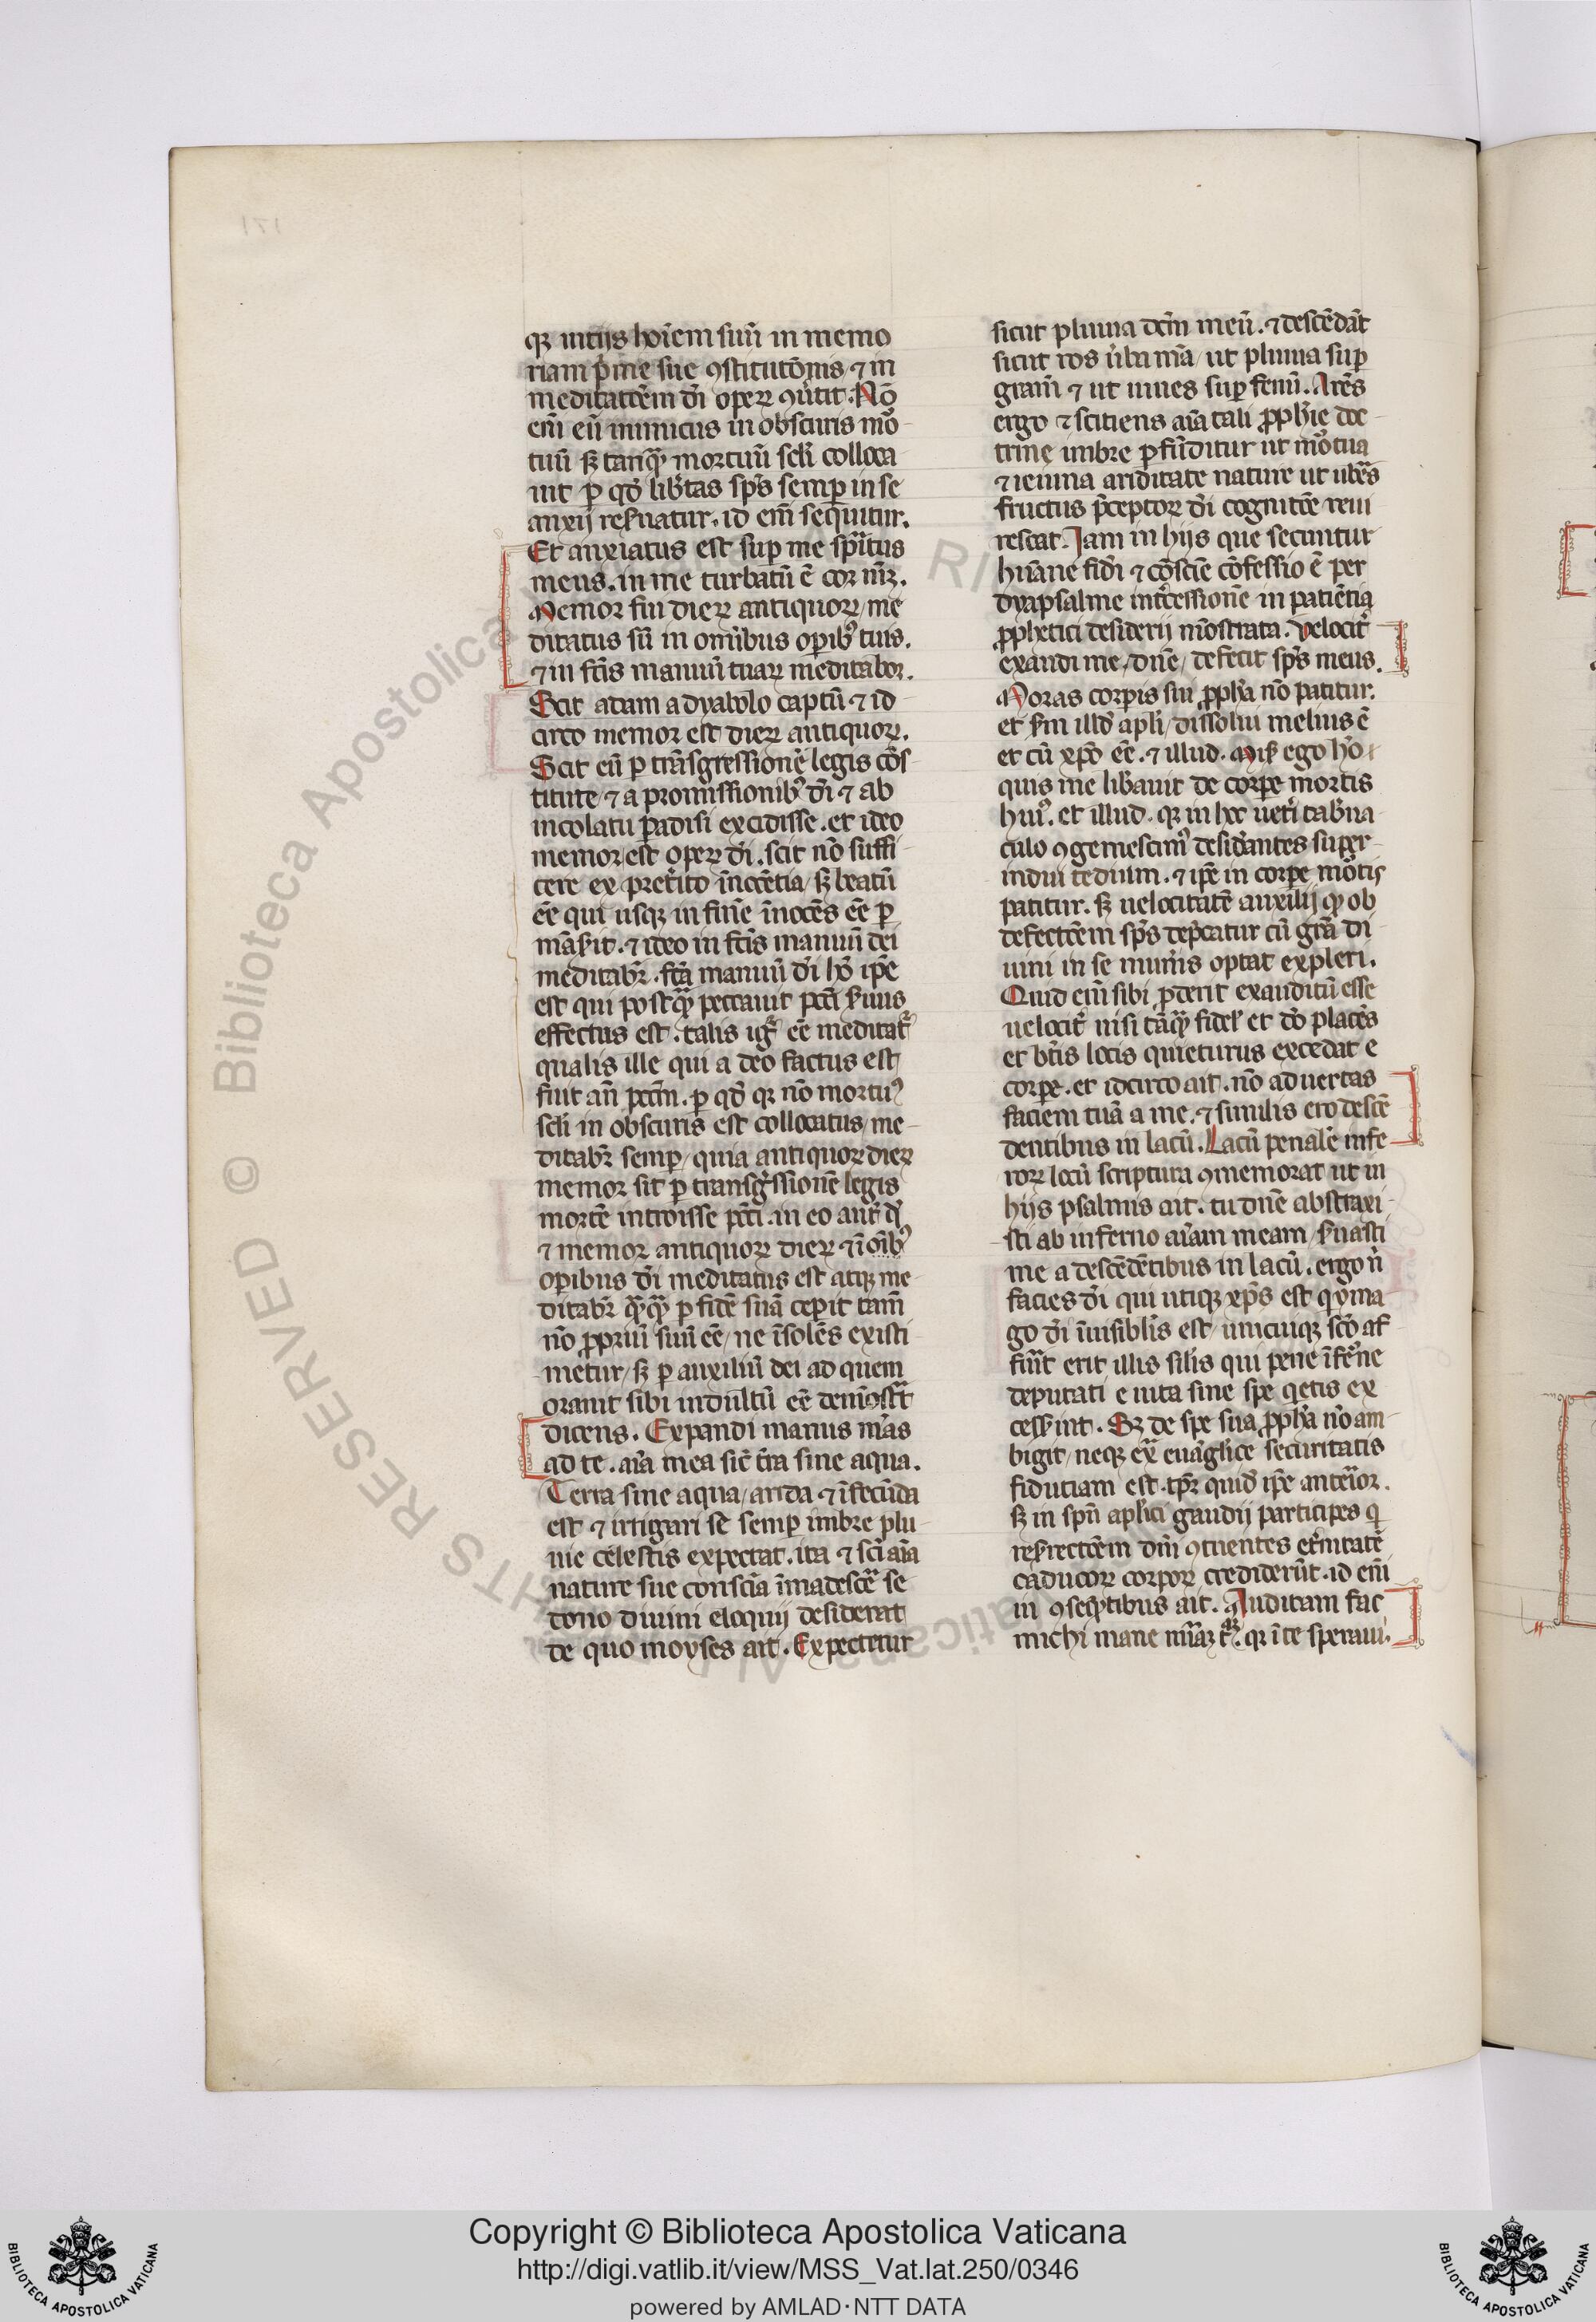 qꝫ intijs hoı̄em suū in memo
riam pͥme sue ꝯstitutōnis ⁊ in
meditatōem dı̄ operꝝ ꝯuͥtit. Nō
em̄ eū inimicus in obscuris moͬ-
tuū sꝫ tanqͣꝫ mortuū sclı̄ colloca-
uit ꝑ qd̄ lib̄tas sp̄s semꝑ in se
anxij reẜuatur. id em̄ sequitur.
Et anxiatus est suꝑ me spı̄tus
meus. in me turbatū ē cor mꝫ.
Memor fui dierꝝ antiquorꝝ me
ditatus sū in omībus oꝑibꝰ tuis.
⁊ in fc̄is manuū tuarꝝ meditabor.
Scit adam a dyabolo captū ⁊ id
circo memor est dierꝝ antiquorꝝ.
Scit eū ꝑ trāsgressionē legis cōs-
titute ⁊ a promissionibꝰ dı̄ ⁊ ab
incolatu ꝑadisi excidisse. et ideo
memor est operꝝ dı̄. scit nō suffi-
cere ex pret̄ito īnocētia sꝫ beatū
eē qui usqꝫ in finē īnocēs eē ꝑ
māẜit. ⁊ ideo in fc̄is manuū dei
meditabͬ. fc̄a manuū dı̄ hō ip̄e
est qui postqͣꝫ peccauit pcc̄i ẜuus
effectus est. talis igͬ eē meditatͬ
qualis ille qui a deo factus est
fuit an̄ pcc̄m. ꝑ qd̄ qꝫ nō mortuꝰ
sclı̄ in obscuris est collocatus me-
ditabͬ semꝑ quia antiquorꝝ dierꝝ
memor sit ꝑ transgͬssionē legis
mortē introisse pcc̄i. in eo aut̄ qd̄
⁊ memor antiquorꝝ dierꝝ ⁊ ī oı̄bꝰ
oꝑibus dı̄ meditatus est atqꝫ me-
ditabͬ qͣꝫqͣꝫ ꝑ fidē suā ceꝑit tam̄
nō ꝓprıū suū eē ne īsolēs existi
metur sꝫ ꝑ auxiliū dei ad quem
orauit sibi indultū eē demōstͣt
dicens. Expandi manus mēas
ad te. aı̄a mea sic̄ t̄ra sine aqua.
Terra sine aqua arida ⁊ īfecūda
est ⁊ irrigari se semꝑ imbre plu-
uie celestis expectat. ita ⁊ sc̄i aı̄a
nature sue conscı̄a īmadescē se
dono diuini eloquij desiderat
de quo moyses ait. Expectetur
sicut pluuia dc̄m meū. ⁊ descēdāt
sicut ros ūba mā ut pluuia suꝑ
gram̄ ⁊ ut niues suꝑ fenū. Arēs
ergo ⁊ scitiens aı̄a tali ꝓph̄ie doc-
trine imbre ꝑfūditur ut moͬtua
⁊ ieiuna ariditate nature ut ub̄es
fructus p̄ceptorꝝ dı̄ cognitōe reui
rescat. Jam in hijs que secuntur
hūane fidı̄ ⁊ cōscie cōfessio ē per
dyapsalme int̄cessionē in patiētia
ꝓphetici desiderij mōstrata. velocit̄
exaudi me dn̄e defecit sp̄s meus.
Moras corꝑis sui ꝓph̄a nō patitur.
et ẜm illd̄ apl̄i dissolui melius ē
et cū xp̄o eē. ⁊ illud. Miẜ ego hō
quis me lib̄auit de corꝑe mortis
huiꝰ. et illud. qꝫ in hoc uet̄i tab̄na-
culo ꝯgemescimꝰ desid̄antes super-
indui tedium. ⁊ ip̄e in corꝑe moͬtis
patitur. sꝫ uelocitatē auxilij qꝫ ob
defectōem sp̄s depͥcatur cū grā di-
uini in se munı̄s optat expleri.
Quid em̄ sibi ꝓderit exauditū esse
uelocit̄ nisi tāqͣꝫ fidel' et dō placēs
et bt̄is locis quieturus excedat e
corꝑe. et idcirco ait. nō aduertas
faciem tuā a me. ⁊ similis ero descē
dentibus in lacū. Lacū penalē infe
rorꝝ locū scriptura ꝯmemorat ut in
hijs psalmis ait. tu dn̄e abstraxi-
sti ab inferno aı̄am meam ẜuasti
me a descēdētibus in lacū. ergo n̄
facies dı̄ qui utiqꝫ xp̄s est qͥ yma
go dı̄ īuisiblis est unicuiqꝫ sc̄o af
fuīt erit illis silı̄s qui pene īfeͬne
deputati e uita sine spe qͥetis ex
cesẜint. Sꝫ de spe sua ꝓph̄a nō am-
bigit neqꝫ exͣ euāglice securitatis
fiduciam est. tp̄r quid̄ ip̄e anteͥor.
sꝫ in spū ap̄lici gaudij participes qͥ
resͬrectōem dn̄i ꝯtuentes et̄nitatē
caducorꝝ corꝑorꝝ crediderūt. id em̄
in ꝯseqͣꝫtibus ait. Auditam fac
michi mane mı̄az tͣꝫ. qꝫ ī te speraui.
Copyright © Biblioteca Apostolica Vaticana
http://digi.vatlib.it/view/MSS_Vat.lat.250/0346
powered by AMLAD·NTT DATA